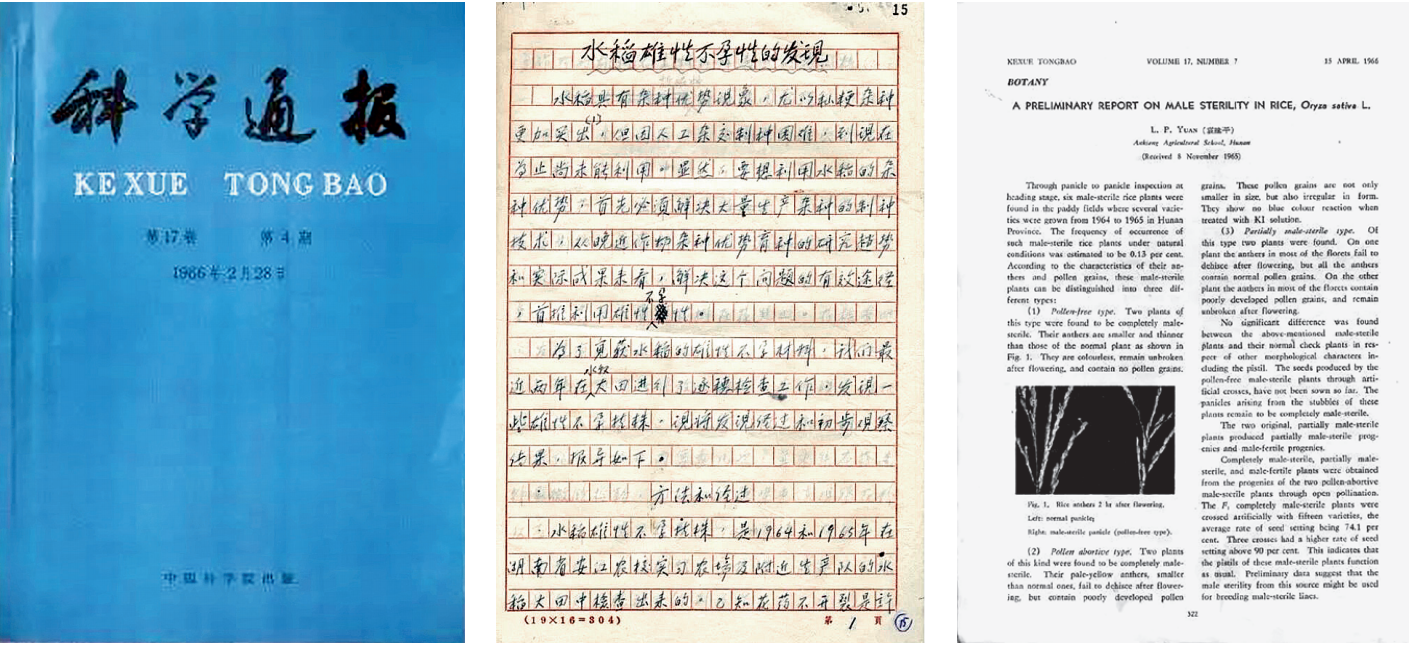 科学通报
KEXUE TONGBAO
第17卷 第4期
1966年2月28日
中国科学院出版
15
水稻雄性不孕性的发现
水稻具有杂种优势现象，尤以籼粳杂种
更加突出(1)，但因人工杂交制种困难，到现在
为止尚未能利用。显然，要想利用水稻的杂
种优势，首先必须解决大量生产杂种的制种
技术，从晚近作物杂种优势育种的研究趋势
和实际成果来看，解决这个问题的有效途径
，首推利用雄性不孕性。
为了寻获水稻的雄性不孕材料，我们最
近两年在水稻大田进行了逐穗检查工作，发现一
些雄性不孕植株，现将发现经过和初步观察
结果，报导如下。
方法和经过
水稻雄性不孕植株，是1964和1965年在
湖南省安江农校实习农场及附近生产队的水
稻大田中检查出来的。已知花药不开裂是许
(19×16=304) 第 1 頁 15
KEXUE TONGBAO VOLUME 17, NUMBER 7 15 APRIL 1966
BOTANY
A PRELIMINARY REPORT ON MALE STERILITY IN RICE, Oryza sativa L.
L. P. YUAN (袁隆平)
Ankiang Agricultural School, Hunan
(Received 8 November 1965)
Through panicle to panicle inspection at
heading stage, six male-sterile rice plants were
found in the paddy fields where several varie-
ties were grown from 1964 to 1965 in Hunan
Province. The frequency of occurrence of
such male-sterile rice plants under natural
conditions was estimated to be 0.13 per cent.
According to the characteristics of their an-
thers and pollen grains, these male-sterile
plants can be distinguished into three dif-
ferent types:
(1) Pollen-free type. Two plants of
this type were found to be completely male-
sterile. Their anthers are smaller and thinner
than those of the normal plant as shown in
Fig. 1. They are colourless, remain unbroken
after flowering, and contain no pollen grains.
Fig. 1. Rice anthers 2 hr after flowering.
Left: normal panicle;
Right: male-sterile panicle (pollen-free type).
(2) Pollen abortive type. Two plants
of this kind were found to be completely male-
sterile. Their pale-yellow anthers, smaller
than normal ones, fail to dehisce after flower-
ing, but contain poorly developed pollen
grains. These pollen grains are not only
smaller in size, but also irregular in form.
They show no blue colour reaction when
treated with KI solution.
(3) Partially male-sterile type. Of
this type two plants were found. On one
plant the anthers in most of the florets fail to
dehisce after flowering, but all the anthers
contain normal pollen grains. On the other
plant the anthers in most of the florets contain
poorly developed pollen grains, and remain
unbroken after flowering.
No significant difference was found
between the above-mentioned male-sterile
plants and their normal check plants in res-
pect of other morphological characters in-
cluding the pistil. The seeds produced by the
pollen-free male-sterile plants through arti-
ficial crosses, have not been sown so far. The
panicles arising from the stubbles of these
plants remain to be completely male-sterile.
The two original, partially male-sterile
plants produced partially male-sterile prog-
enies and male-fertile progenies.
Completely male-sterile, partially male-
sterile, and male-fertile plants were obtained
from the progenies of the two pollen-abortive
male-sterile plants through open pollination.
The F₁ completely male-sterile plants were
crossed artificially with fifteen varieties, the
average rate of seed setting being 74.1 per
cent. Three crosses had a higher rate of seed
setting above 90 per cent. This indicates that
the pistils of these male-sterile plants function
as usual. Preliminary data suggest that the
male sterility from this source might be used
for breeding male-sterile lines.
522